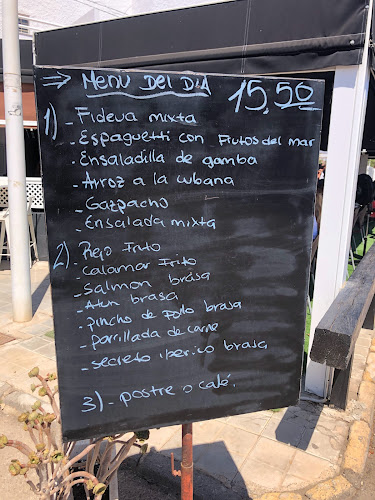 ⇒ Menu Del DiA 15,50
1) - Fideua mixta
- Espaguetti con Frutos del mar
- Ensaladilla de gamba
- Arroz a la cubana
- Gazpacho
- Ensalada mixta
2) - Pejo Frito
- calamar Frito
- Salmon brasa
- Atun brasa
- pincho de Pollo brasa
- parrillada de carne
- secreto iberico brasa
3) - postre o café.